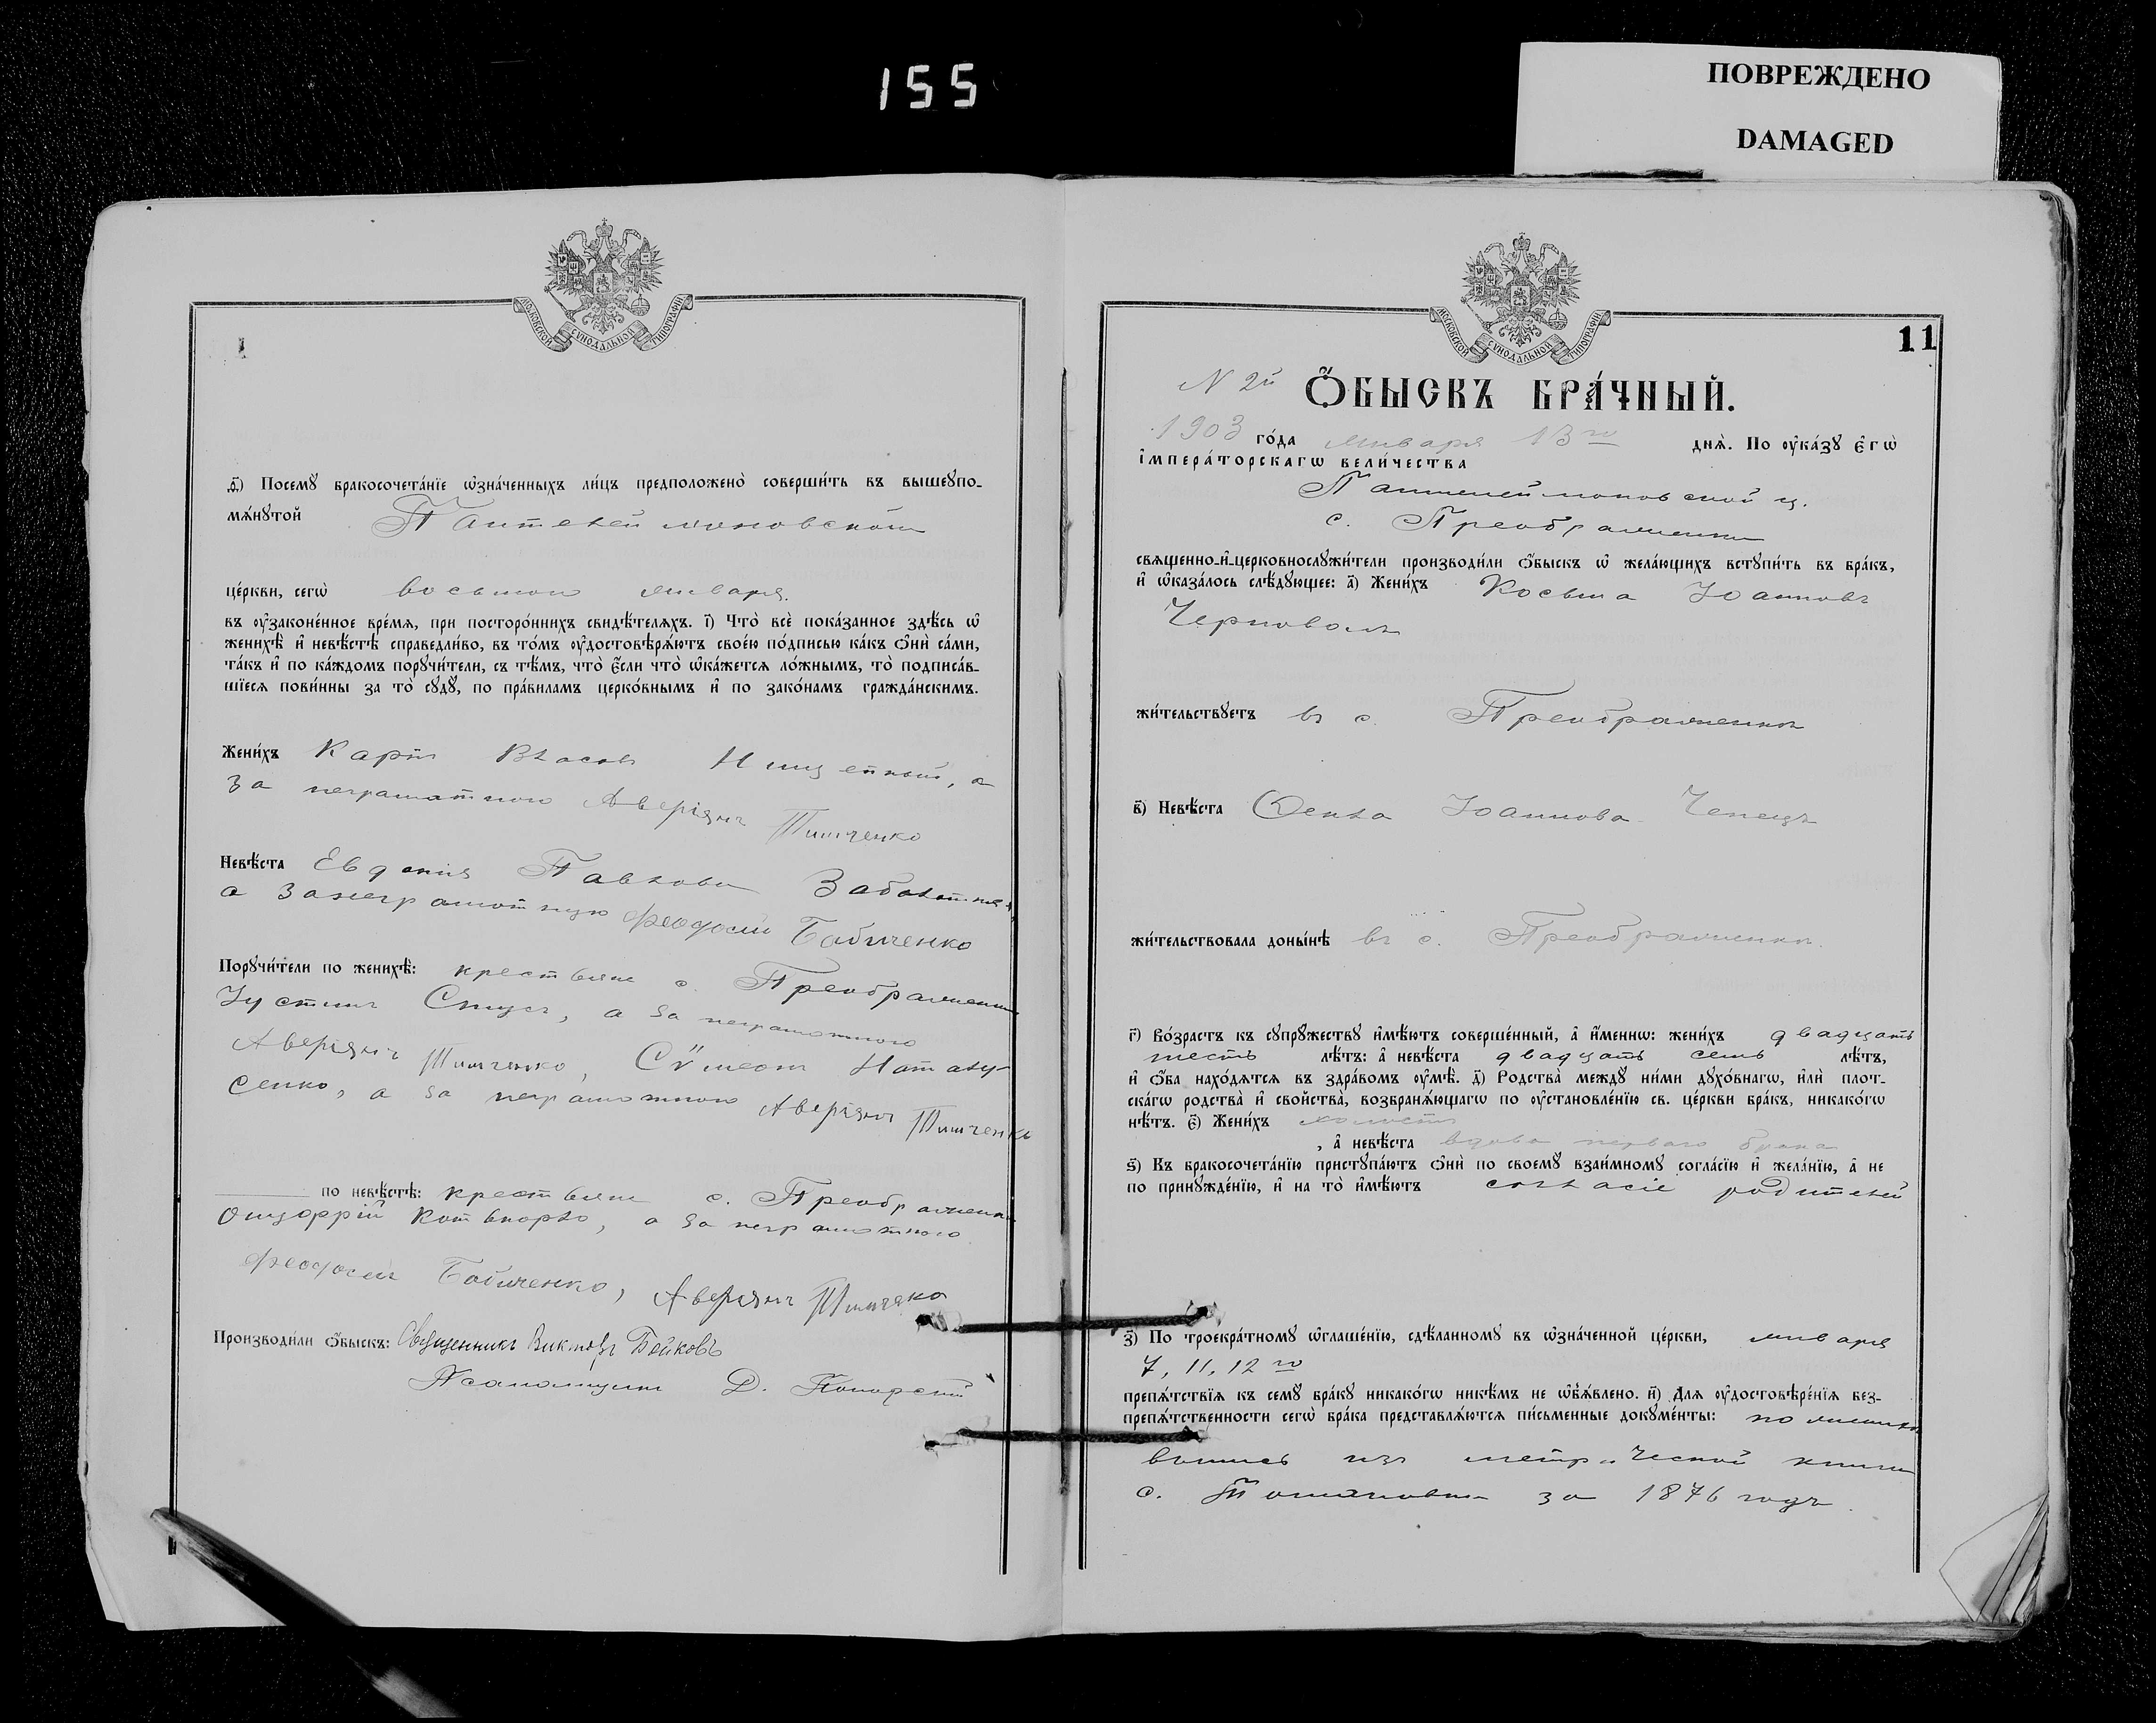 155
ПОВРЕЖДЕНО
DAMAGED
МОСКОВСКОЙ СѴНОДАЛЬНОЙ ТИПОГРАФІИ
ѳ҃) Посемꙋ бракосочета́нїе ѡ҆зна́ченныхъ ли́цъ предположено̀ соверши́ть въ вышеꙋпо-
мѧ́нꙋтой Пантелеймоновской
це́ркви, сегѡ̀ восьмого января.
въ ᲂу҆законе́нное вре́мѧ, при посторо́ннихъ свидѣ́телѧхъ. і҃) Что̀ всѐ пока́занное здѣ́сь ѡ҆
женихѣ̀ и҆ невѣ́стѣ справедли́во, въ то́мъ ᲂу҆достовѣрѧ́ютъ свое́ю по́дписью ка́къ ѻ҆нѝ са́ми,
та́къ и҆ по ка́ждомъ порꙋчи́тели, съ тѣ́мъ, что̀ є҆́сли что̀ ѡ҆ка́жетсѧ ло́жнымъ, то̀ подписа́в-
шїесѧ пови́нны за то̀ сꙋдꙋ̀, по пра́виламъ церко́внымъ и҆ по зако́намъ гражда́нскимъ.
Жени́хъ Карпъ Власовъ Нищенный, а
за неграмотного Аверіянъ Тимченко
Невѣ́ста Евдокія Павлова Заболотняя,
а за неграмотную Феодосій Бабиченко
Порꙋчи́тели по женихѣ̀: крестьяне с. Преображенки
Іустинъ Стусъ, а за неграмотного
Аверіянъ Тимченко, Сѵмеонъ
сенко, а за неграмотного Аверіянъ Тимченко
по невѣ́стѣ: крестьяне с. Преображенки
а за неграмотного
Феодосій Бабиченко, Аверіянъ Тимченко
Производи́ли ѻ҆́быскъ: Священникъ Викторъ Бойковъ
Псаломщикъ Д.
МОСКОВСКОЙ СѴНОДАЛЬНОЙ ТИПОГРАФІИ
11
N 2й Ѻ҆́БЫСКЪ БРА́ЧНЫЙ.
1903 го́да января 13го днѧ̀. По ᲂу҆ка́зꙋ є҆гѡ̀
і҆мпера́торскагѡ вели́чества
Пантелеймоновской ц.
с. Преображенки
свѧщенно-и҆-церковнослꙋжи́тели производи́ли ѻ҆́быскъ ѡ҆ жела́ющихъ встꙋпи́ть въ бра́къ,
и҆ ѡ҆каза́лось слѣ́дꙋющее: а҃) Жени́хъ Косьма Іоанновъ
Черноволъ
жи́тельствꙋетъ въ с. Преображенки
в҃) Невѣ́ста Ѳекла Іоаннова Чепецъ
жи́тельствовала доны́нѣ въ с. Преображенки.
г҃) Во́зрастъ къ сꙋпрꙋ́жествꙋ и҆мѣ́ютъ соверше́нный, а҆ и҆́меннѡ: жени́хъ двадцать
шесть лѣ́тъ: а҆ невѣ́ста двадцать семь лѣ́тъ,
и҆ ѻ҆́ба нахо́дѧтсѧ въ здра́вомъ ᲂу҆мѣ̀. д҃) Родства̀ междꙋ̀ ни́ми дꙋхо́внагѡ, и҆лѝ плот-
ска́гѡ родства̀ и҆ сво́йства̀, возбранѧ́ющагѡ по ᲂу҆становле́нїю св. це́ркви бра́къ, никако́гѡ
нѣ́тъ. є҃) Жени́хъ холостъ
, а҆ невѣ́ста вдова перваго брака
ѕ҃) Къ бракосочета́нїю пристꙋпа́ютъ ѻ҆нѝ по своемꙋ̀ взаи́мномꙋ согла́сїю и҆ жела́нїю, а҆ не
по принꙋжде́нїю, и҆ на то̀ и҆мѣ́ютъ согласіе родителей
з҃) По троекра́тномꙋ ѡ҆глаше́нїю, сдѣ́ланномꙋ въ ѡ҆зна́ченной це́ркви, января
7, 11, 12го
препѧ́тствїѧ къ семꙋ̀ бра́кꙋ никако́гѡ никѣ́мъ не ѡ҆бъѧ́влено. и҃) Длѧ ᲂу҆достовѣре́нїѧ без-
препѧ́тственности сегѡ̀ бра́ка представлѧ́ютсѧ пи́сьменные докꙋме́нты:
выпись изъ метрической книги
с. Томаковки за 1876 годъ.